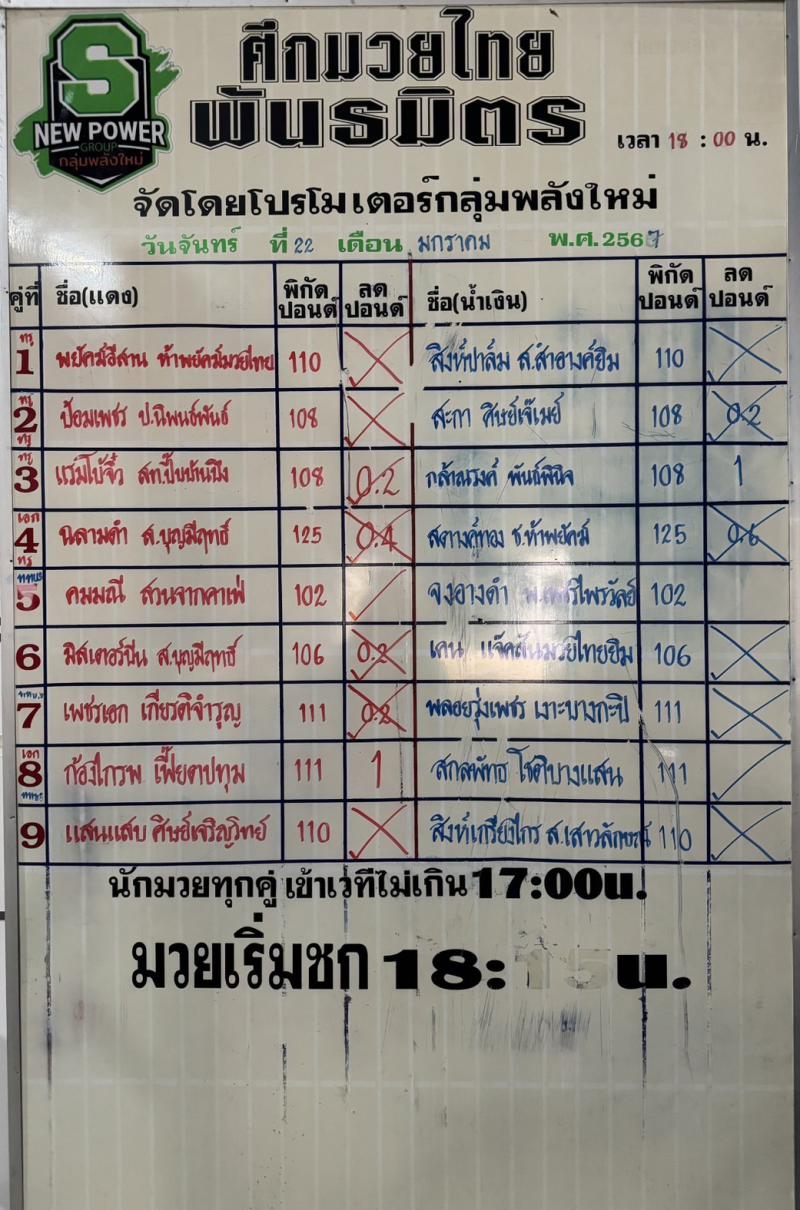 S
NEW POWER
GROUP
กลุ่มพลังใหม่
ศึกมวยไทย
พันธมิตร
เวลา 18 : 00 น.
จัดโดยโปรโมเตอร์กลุ่มพลังใหม่
วันจันทร์ ที่ 22 เดือน มกราคม พ.ศ.2567
คู่ที่ ชื่อ(แดง) พิกัดปอนด์ ลดปอนด์ ชื่อ(น้ำเงิน) พิกัดปอนด์ ลดปอนด์
1 พยัคฆ์อีสาน ท้าพยัคฆ์มวยไทย 110 สิงห์ปาล์ม ส.สำอางค์ยิม 110
2 ป้อมเพชร ป.นิพนธ์พันธ์ 108 สะกา ศิษย์เจ๊เมย์ 108 0.2
3 แรมโบ้จิ๋ว 108 0.2 กล้าณรงค์ พันธ์พินิจ 108 1
เอก
4 ฉลามดำ ส.บุญมีฤทธิ์ 125 0.4 สตางค์ทอง ช.ห้าพยัคฆ์ 125 0.6
5 คมมณี สวนจากคาเฟ่ 102 จงอางดำ 102
6 มิสเตอร์ปืน ส.บุญมีฤทธิ์ 106 0.2 เคน แจ๊คสันมวยไทยยิม 106
7 เพชรเอก เกียรติจำรูญ 111 0.2 พลอยรุ่งเพชร เงาะบางกะปิ 111
เอก
8 ก้องไกรพ เฟี้ยตปทุม 111 1 สกลพัทธ โชติบางแสน 111
9 แสนแสบ ศิษย์เจริญวิทย์ 110 สิงห์เกรียงไกร ส.เสาวลักษณ์ 110
นักมวยทุกคู่ เข้าเวทีไม่เกิน 17:00น.
มวยเริ่มชก 18:15น.